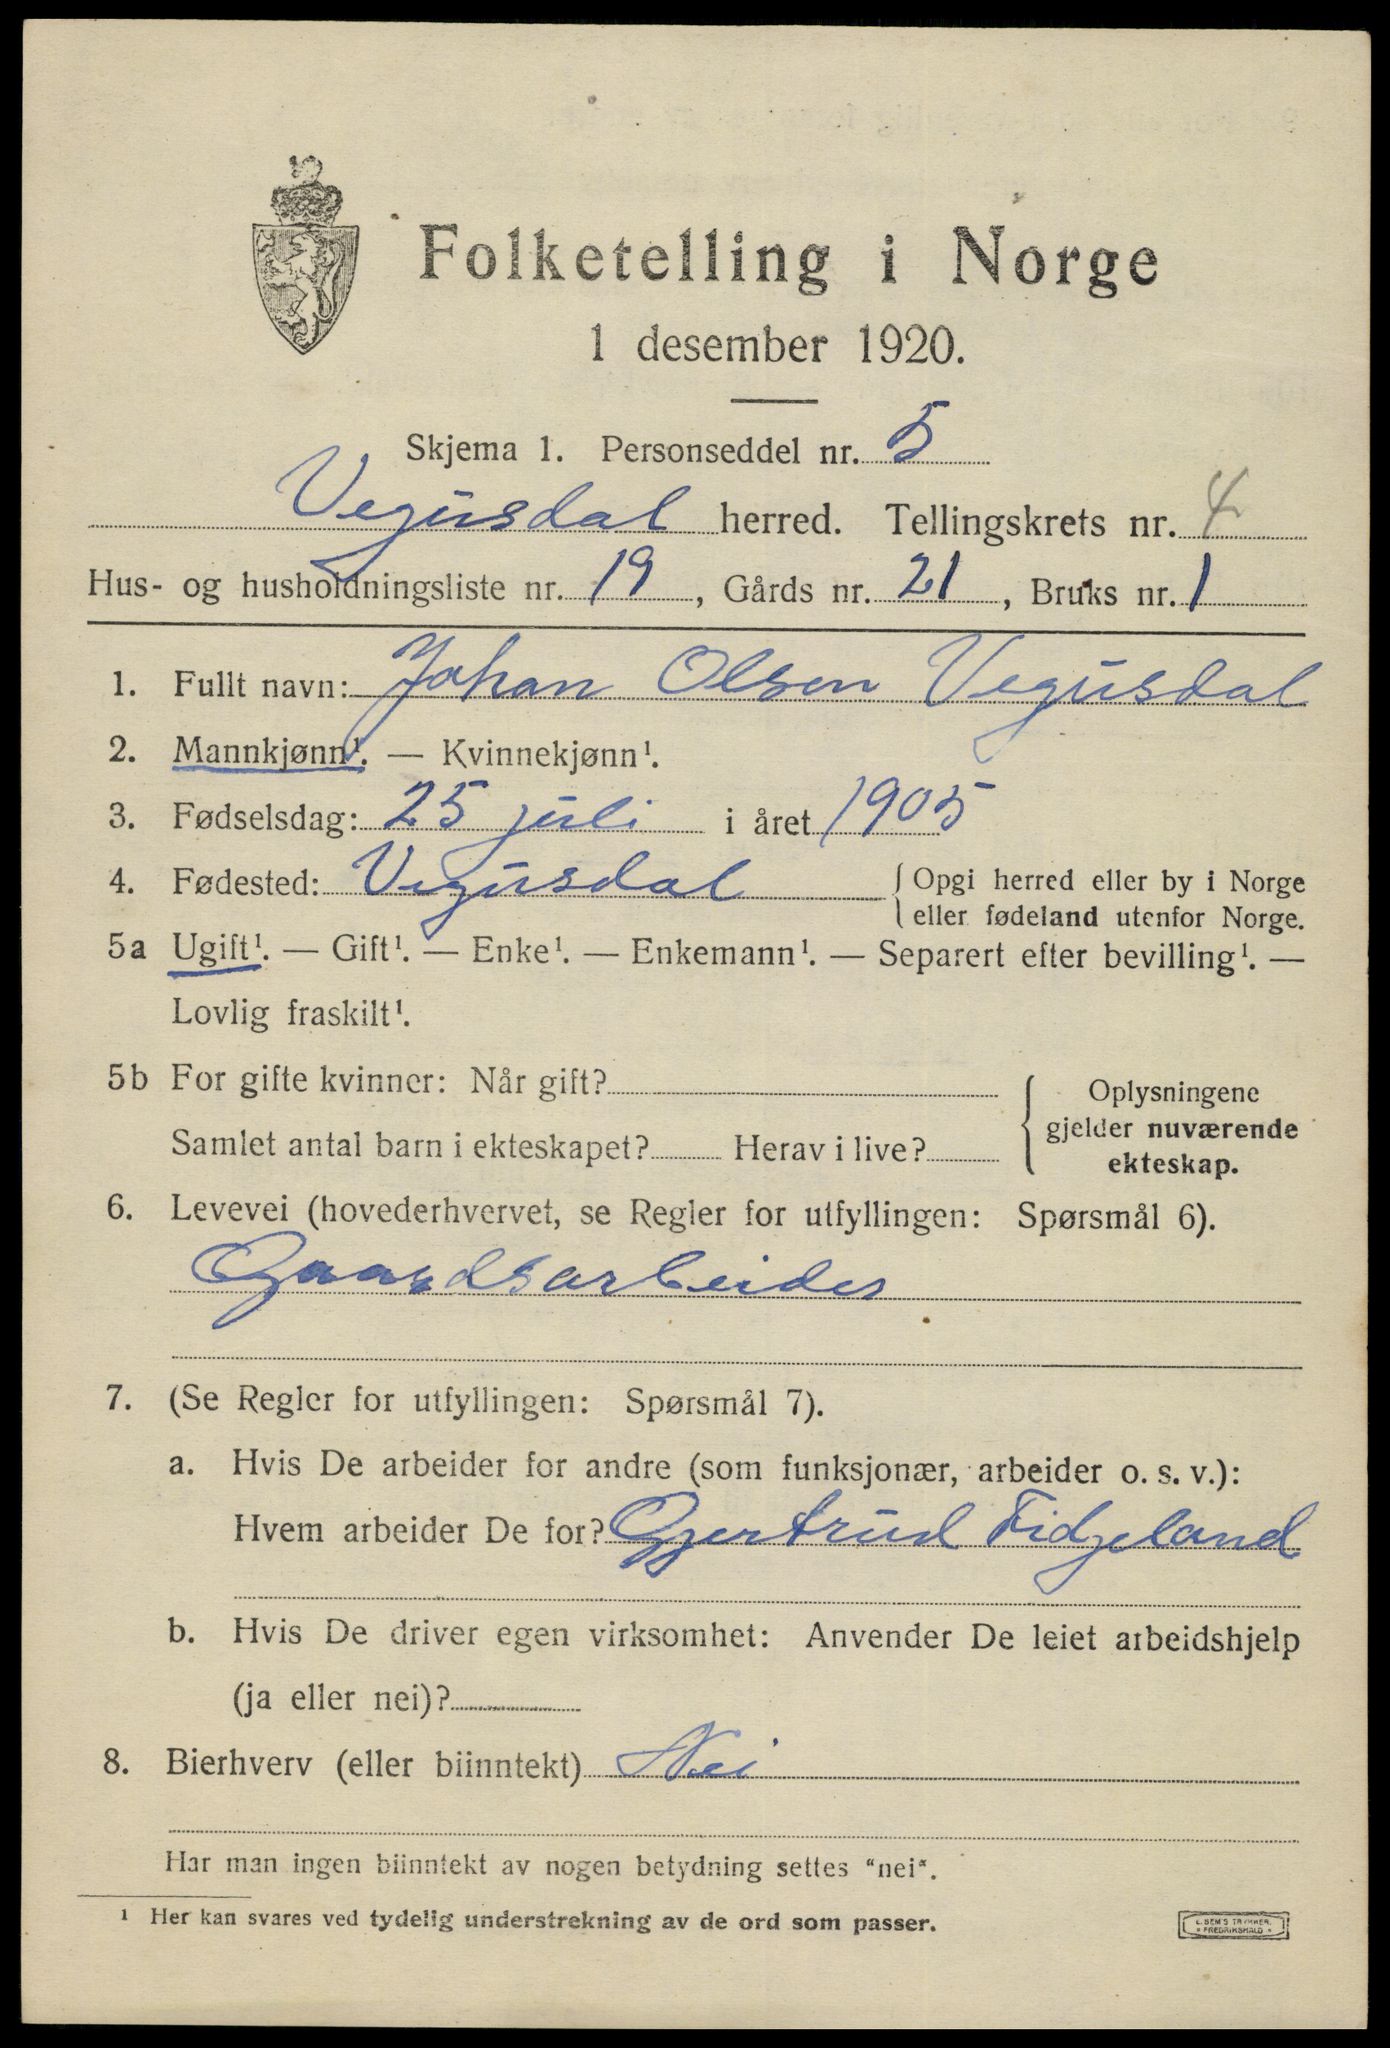 Folketelling i Norge
1 desember 1920.
Skjema 1. Personseddel nr. 5
Vegusdal herred. Tellingskrets nr. 4
Hus- og husholdningsliste nr. 19, Gårds nr. 21, Bruks nr. 1
1. Fullt navn: Johan Olsen Vegusdal
2. Mannkjønn¹. — Kvinnekjønn¹.
3. Fødselsdag: 25 juli i året 1905
4. Fødested: Vegusdal { Opgi herred eller by i Norge
eller fødeland utenfor Norge.
5a Ugift¹. — Gift¹. — Enke¹. — Enkemann¹. — Separert efter bevilling¹. —
Lovlig fraskilt¹.
5b For gifte kvinner: Når gift?
Samlet antal barn i ekteskapet? Herav i live?
{ Oplysningene
gjelder nuværende
ekteskap.
6. Levevei (hovederhvervet, se Regler for utfyllingen: Spørsmål 6).
Gaardsarbeider
7. (Se Regler for utfyllingen: Spørsmål 7).
a. Hvis De arbeider for andre (som funksjonær, arbeider o. s. v.):
Hvem arbeider De for? Gjertrud Fidjeland
b. Hvis De driver egen virksomhet: Anvender De leiet arbeidshjelp
(ja eller nei)?
8. Bierhverv (eller biinntekt) Nei
Har man ingen biinntekt av nogen betydning settes "nei".
¹ Her kan svares ved tydelig understrekning av de ord som passer.
E. SEM'S TRYKKERI,
FREDRIKSHALD